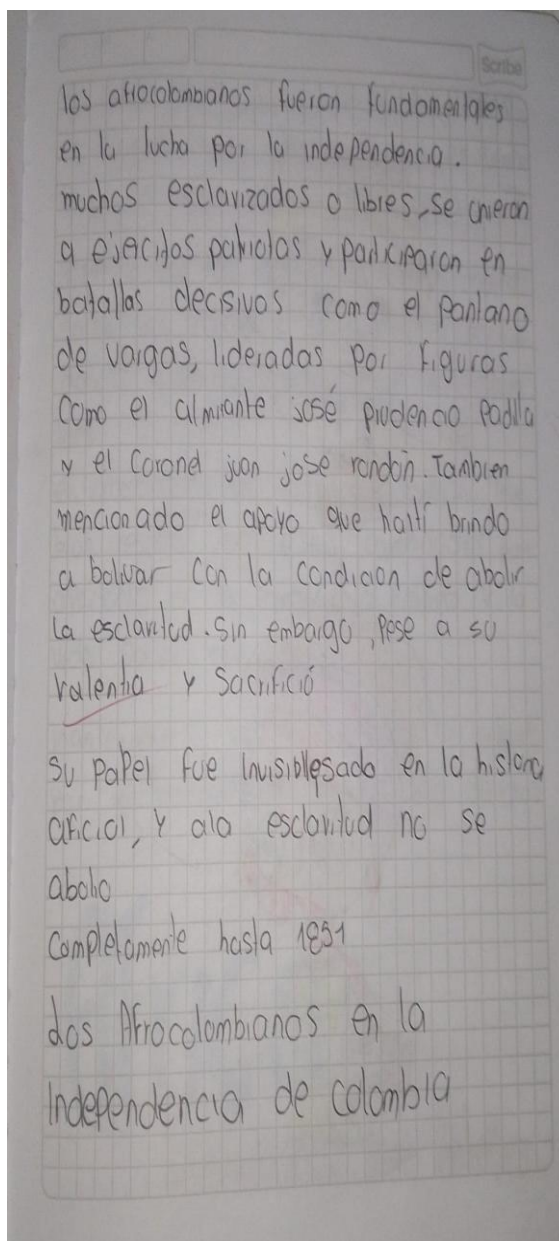 Scribe
los afrocolombianos fueron fundamentales
en la lucha por la independencia.
muchos esclavizados o libres, se unieron
a ejercitos patriotas y participaron en
batallas decisivas como el pantano
de vargas, lideradas por figuras
como el almirante josé prudencio padilla
y el coronel juan jose rondón. Tambien
mencionado el apoyo que haití brindo
a bolivar con la condicion de abolir
la esclavitud. Sin embargo, pese a su
valentia y sacrifició
su papel fue invisiblesado en la historia
oficial, y ala esclavitud no se
abolio
completamente hasta 1851
dos Afrocolombianos en la
independencia de colombia